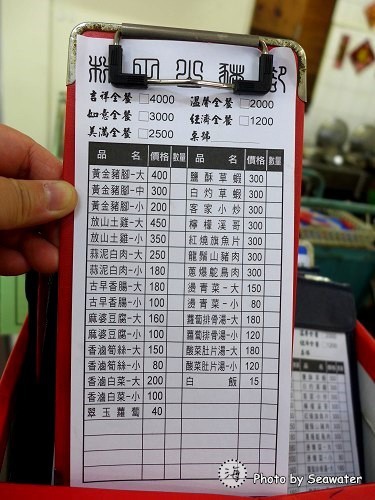 林丙火豬腳
吉祥全餐 □4000 溫馨全餐 □2000
如意全餐 □3000 經濟全餐 □1200
美滿全餐 □2500 桌號
品名 價格 數量 品名 價格 數量
黃金豬腳-大 400 鹽酥草蝦 300
黃金豬腳-中 300 白灼草蝦 300
黃金豬腳-小 200 客家小炒 300
放山土雞-大 450 檸檬溪哥 300
放山土雞-小 350 紅燒旗魚片 300
蒜泥白肉-大 250 龍鬚山豬肉 300
蒜泥白肉-小 180 蔥爆鴕鳥肉 300
古早香腸-大 180 燙青菜-大 150
古早香腸-小 100 燙青菜-小 80
麻婆豆腐-大 160 蘿蔔排骨湯-大 180
麻婆豆腐-小 100 蘿蔔排骨湯-小 120
香滷筍絲-大 150 酸菜肚片湯-大 180
香滷筍絲-小 80 酸菜肚片湯-小 120
香滷白菜-大 200 白飯 15
香滷白菜-小 100
翠玉蘿蔔 40
海 Photo by Seawater